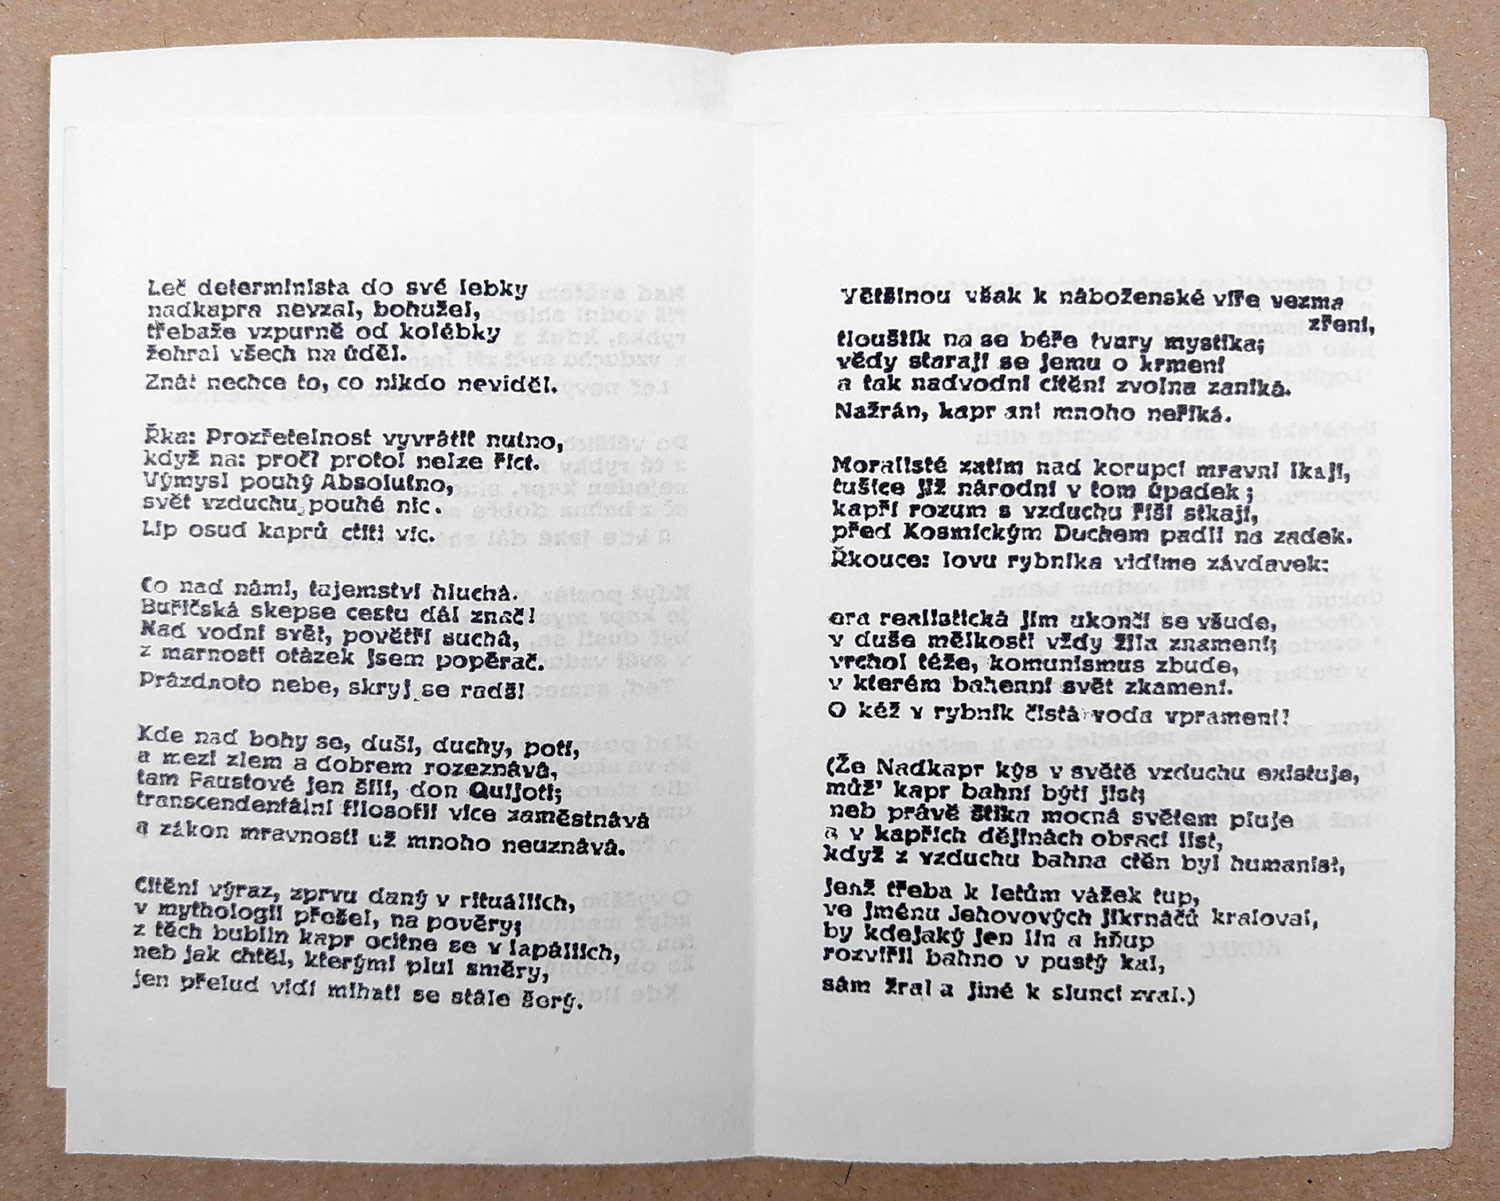 Leč determinista do své lebky
nadkapra nevzal, bohužel,
třebaže vzpurně od kolébky
žehral všech na úděl.
Znát nechce to, co nikdo neviděl.
Řka: Prozřetelnost vyvrátit nutno,
když na: proč? protož nelze říct.
Výmysl pouhý Absolutno,
svět vzduchu pouhé nic.
Líp osud kaprů ctíti víc.
Co nad námi, tajemství hluchá.
Buřičská skepse cestu dál znač!
Nad vodní svět, povětří suchá,
z marnosti otázek jsem popěrač.
Prázdnoto nebe, skryj se radš!
Kde nad bohy se, duší, duchy, potí,
a mezi zlem a dobrem rozeznává,
tam Faustové jen šílí, don Quijoti;
transcendentální filosofií více zaměstnává
a zákon mravnosti už mnoho neuznává.
Cítění výraz, zprvu daný v rituáliích,
v mythologii přešel, na pověry;
z těch bublin kapr ocitne se v lapáliích,
neb jak chtěl, kterými plul směry,
jen přelud vidí míhati se stále šerý.
Většinou však k náboženské víře vezma
zření,
tlouštík na se béře tvary mystika;
vědy starají se jemu o krmení
a tak nadvodní cítění zvolna zaniká.
Nažrán, kapr ani mnoho neříká.
Moralisté zatím nad korupcí mravní lkají,
tušíce již národní v tom úpadek;
kapří rozum s vzduchu říší stkají,
před Kosmickým Duchem padli na zadek.
Řkouce: lovu rybníka vidíme závdavek:
era realistická jím ukončí se všude,
v duše mělkosti vždy žila znamení;
vrchol téže, komunismus zbude,
v kterém bahenní svět zkamení.
O kéž v rybník čistá voda vpramení!
(Že Nadkapr kýs v světě vzduchu existuje,
můž' kapr bahní býti jist;
neb právě štika mocná světem pluje
a v kapřích dějinách obrací list,
když z vzduchu bahna ctěn byl humanist,
jenž třeba k letům vážek tup,
ve jménu Jehovových jikrnáčů kraloval,
by kdejaký jen lín a hňup
rozvířil bahno v pustý kal,
sám žral a jiné k slunci zval.)